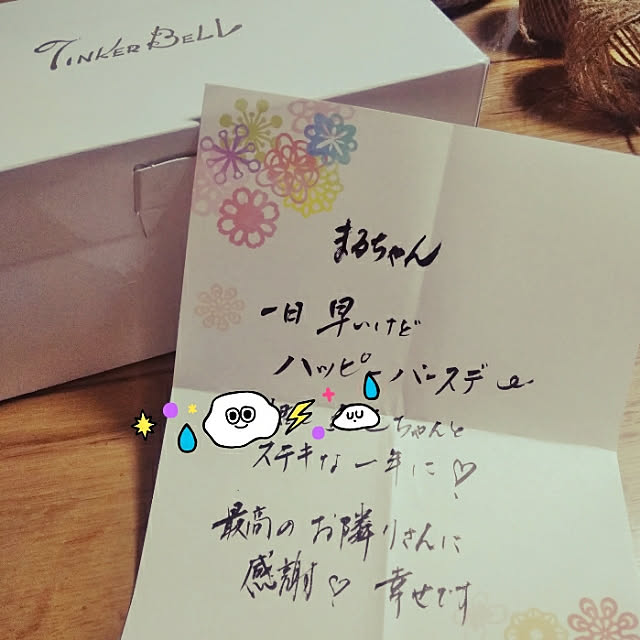 TINKER BELL
まるちゃん
一日 早いけど
ハッピーバースデー
ちゃんと
ステキな一年に♡
最高のお隣りさんに
感謝♡ 幸せです